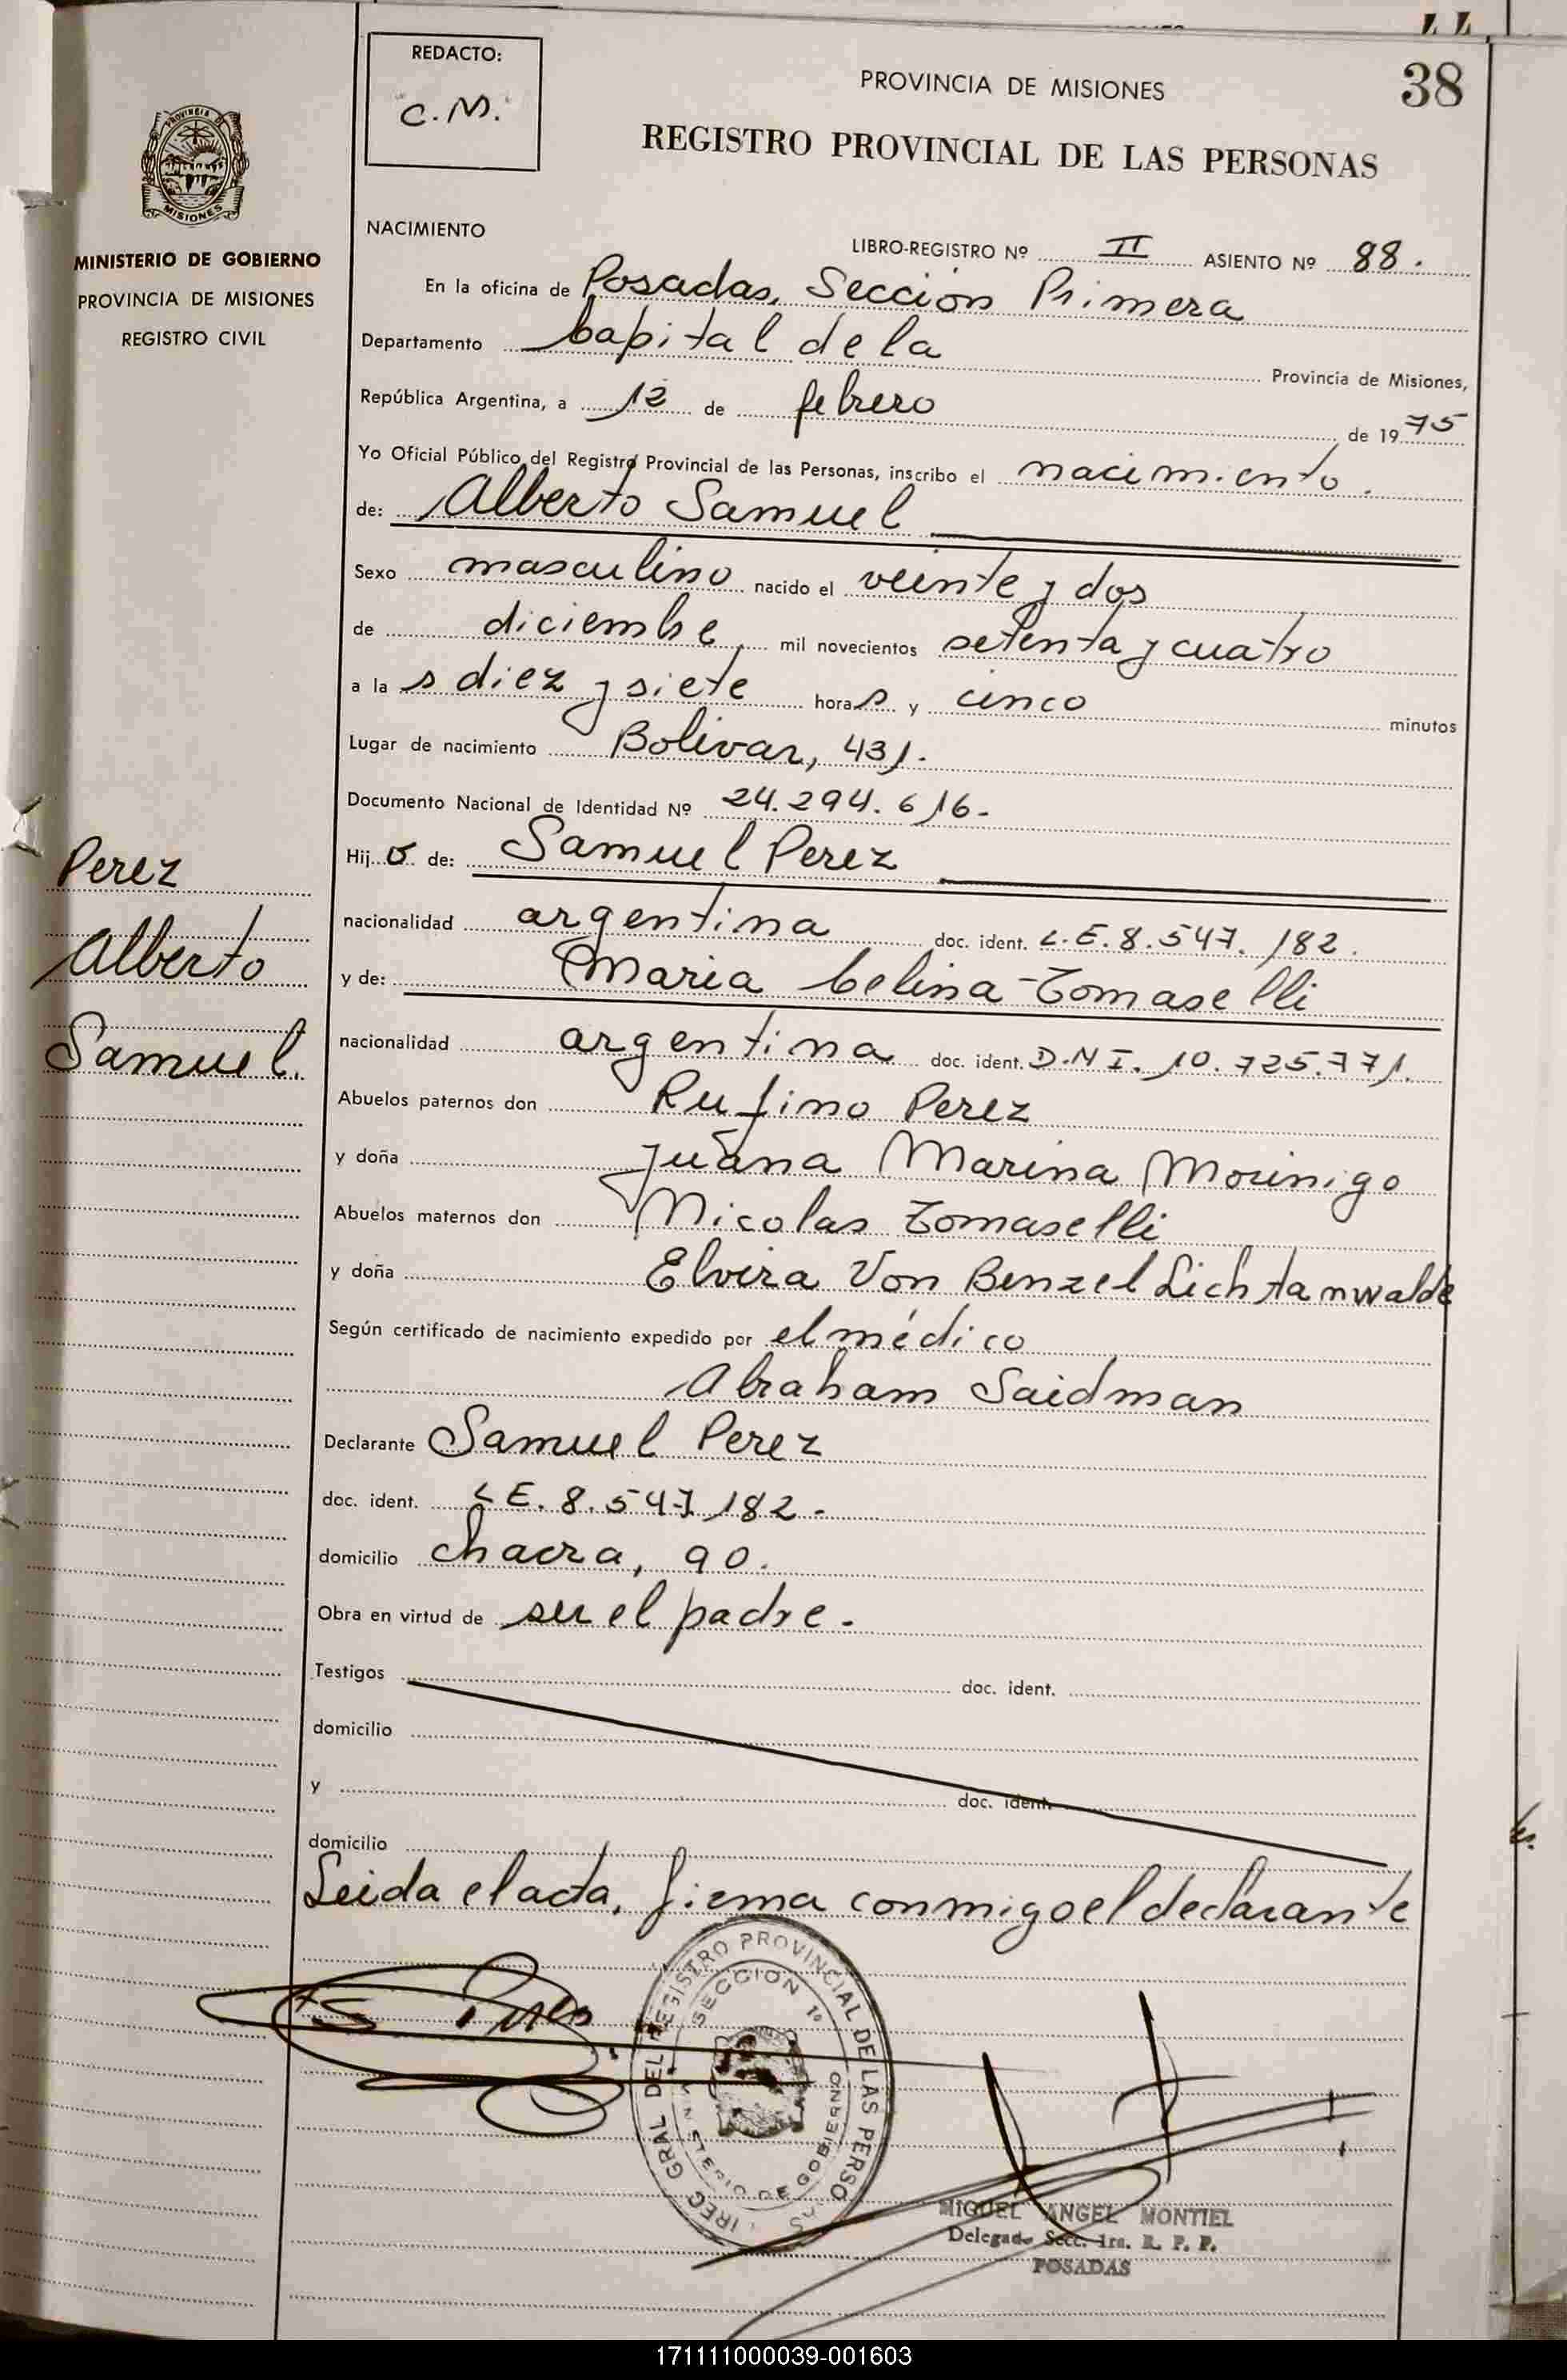 REDACTO:
C.M.
PROVINCIA DE MISIONES
38
REGISTRO PROVINCIAL DE LAS PERSONAS
PROVINCIA D
MISIONES
MINISTERIO DE GOBIERNO
PROVINCIA DE MISIONES
REGISTRO CIVIL
NACIMIENTO
LIBRO-REGISTRO Nº II ASIENTO Nº 88.
En la oficina de Posadas, Sección Primera
Departamento Capital de la Provincia de Misiones,
República Argentina, a 12 de febrero de 1975
Yo Oficial Público del Registro Provincial de las Personas, inscribo el nacimiento.
de: Alberto Samuel
Sexo masculino nacido el veinte y dos
de diciembre, mil novecientos setenta y cuatro
a la s diez y siete horas y cinco minutos
Lugar de nacimiento Bolivar, 431.
Documento Nacional de Identidad Nº 24.294.616-
Hijo de: Samuel Perez
nacionalidad argentina doc. ident. L.E. 8.547.182.
y de: Maria Celina Tomaselli
nacionalidad argentina doc. ident. D.N I. 10.725.771.
Abuelos paternos don Rufino Perez
y doña Juana Marina Morinigo
Abuelos maternos don Nicolas Tomaselli
y doña Elvira Von Benzel Lichtanwalde
Según certificado de nacimiento expedido por el médico
Abraham Saidman
Declarante Samuel Perez
doc. ident. L E. 8.547.182-
domicilio chacra, 90.
Obra en virtud de ser el padre.
Testigos doc. ident.
domicilio
y doc. ident.
domicilio
Leida el acta, firma conmigo el declarante
Perez
Alberto
Samuel.
S Perez
GRAL DEL REGISTRO PROVINCIAL DE LAS PERSO
SECCION 1º
DE GOBIERNO
MIGUEL ANGEL MONTIEL
Delegado Secc. 1ra. R. P. P.
POSADAS
171111000039-001603